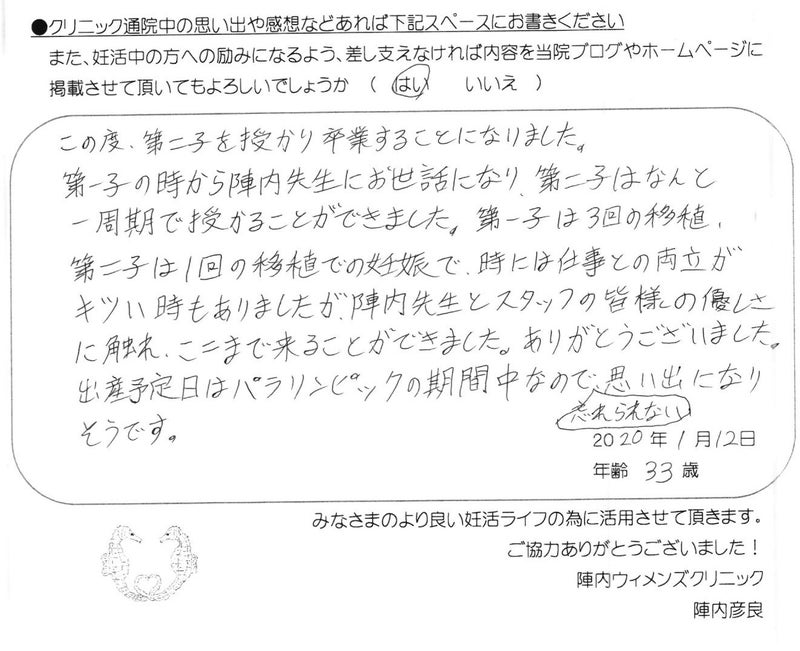 ●クリニック通院中の思い出や感想などあれば下記スペースにお書きください
また、妊活中の方への励みになるよう、差し支えなければ内容を当院ブログやホームページに
掲載させて頂いてもよろしいでしょうか （ はい いいえ ）
この度、第二子を授かり卒業することになりました。
第一子の時から陣内先生にお世話になり、第二子はなんと
一周期で授かることができました。第一子は3回の移植、
第二子は1回の移植での妊娠で、時には仕事との両立が
キツい時もありましたが、陣内先生とスタッフの皆様の優しさ
に触れ、ここまで来ることができました。ありがとうございました。
出産予定日はパラリンピックの期間中なので、思い出になり
忘れられない
そうです。
2020年1月12日
年齢 33歳
みなさまのより良い妊活ライフの為に活用させて頂きます。
ご協力ありがとうございました！
陣内ウィメンズクリニック
陣内彦良